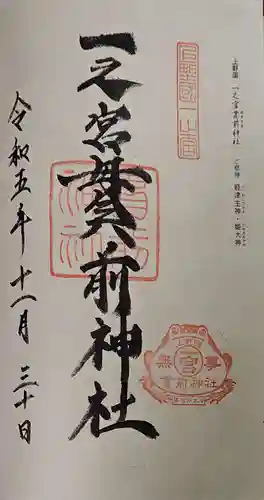 上野國 一之宮貫前神社
ご祭神 経津主神・姫大神
一之宮貫前神社
令和五年十一月三十日
上野國一之宮
無事
貫前神社